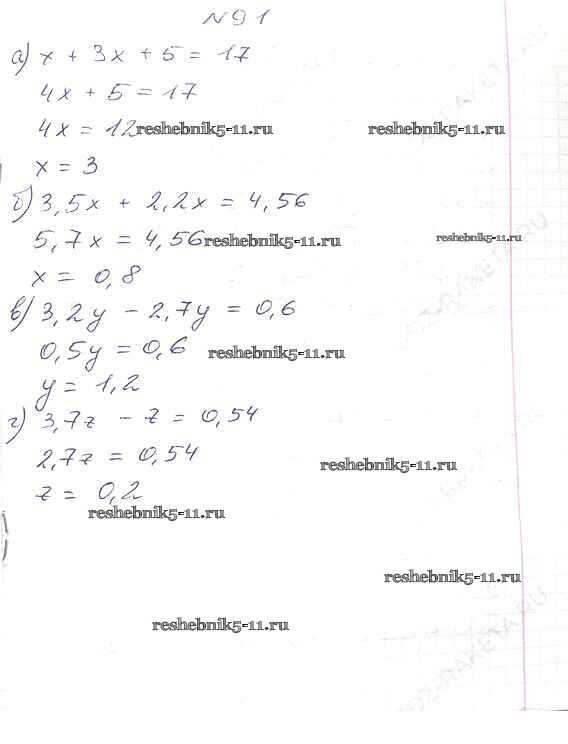 №91
а) x + 3x + 5 = 17
4x + 5 = 17
4x = 12 reshebnik5-11.ru reshebnik5-11.ru
x = 3
б) 3,5x + 2,2x = 4,56
5,7x = 4,56 reshebnik5-11.ru reshebnik5-11.ru
x = 0,8
в) 3,2y - 2,7y = 0,6
0,5y = 0,6 reshebnik5-11.ru
y = 1,2
г) 3,7z - z = 0,54
2,7z = 0,54
reshebnik5-11.ru
z = 0,2
reshebnik5-11.ru
reshebnik5-11.ru
reshebnik5-11.ru